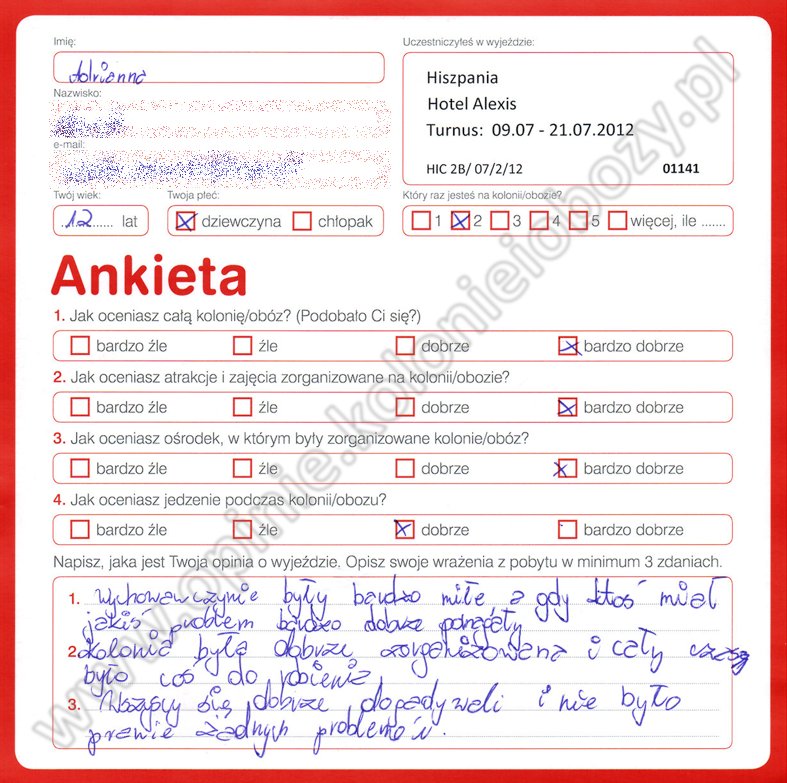 Imię:
Adrianna
Uczestniczyłeś w wyjeździe:
Hiszpania
Hotel Alexis
Turnus: 09.07 - 21.07.2012
HIC 2B/ 07/2/12 01141
Nazwisko:
e-mail:
Twój wiek:
12 lat
Twoja płeć:
dziewczyna chłopak
Który raz jesteś na kolonii/obozie?
1 2 3 4 5 więcej, ile .......
Ankieta
1. Jak oceniasz całą kolonię/obóz? (Podobało Ci się?)
bardzo źle źle dobrze bardzo dobrze
2. Jak oceniasz atrakcje i zajęcia zorganizowane na kolonii/obozie?
bardzo źle źle dobrze bardzo dobrze
3. Jak oceniasz ośrodek, w którym były zorganizowane kolonie/obóz?
bardzo źle źle dobrze bardzo dobrze
4. Jak oceniasz jedzenie podczas kolonii/obozu?
bardzo źle źle dobrze bardzo dobrze
Napisz, jaka jest Twoja opinia o wyjeździe. Opisz swoje wrażenia z pobytu w minimum 3 zdaniach.
1. Wychowawczynie były bardzo miłe, a gdy ktoś miał
jakiś problem bardzo dobrze pomagały
2. kolonia była dobrze zorganizowana i cały czas
było coś do robienia
3. Wszyscy się dobrze dogadywali i nie było
prawie żadnych problemów.
www.opinie.kolonieiobozy.pl